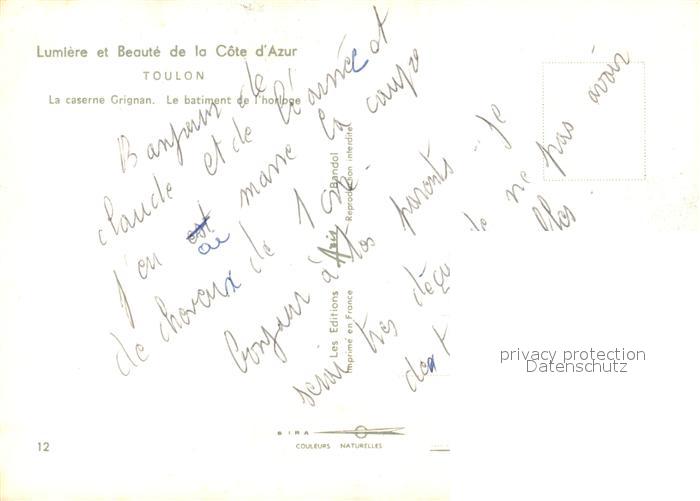 Lumière et Beauté de la Côte d'Azur
TOULON
La caserne Grignan. Le batiment de l'horloge
Banjour de
claude et de l'armée et
j'en ai marre la coupe
de cheveux de 1 cm.
Bonjour à tes parents je
serai très déçu de ne pas avoir
Les Editions d'Art Bandol
Imprimé en France Reproduction interdite
SIRA
COULEURS NATURELLES
12
privacy protection
Datenschutz